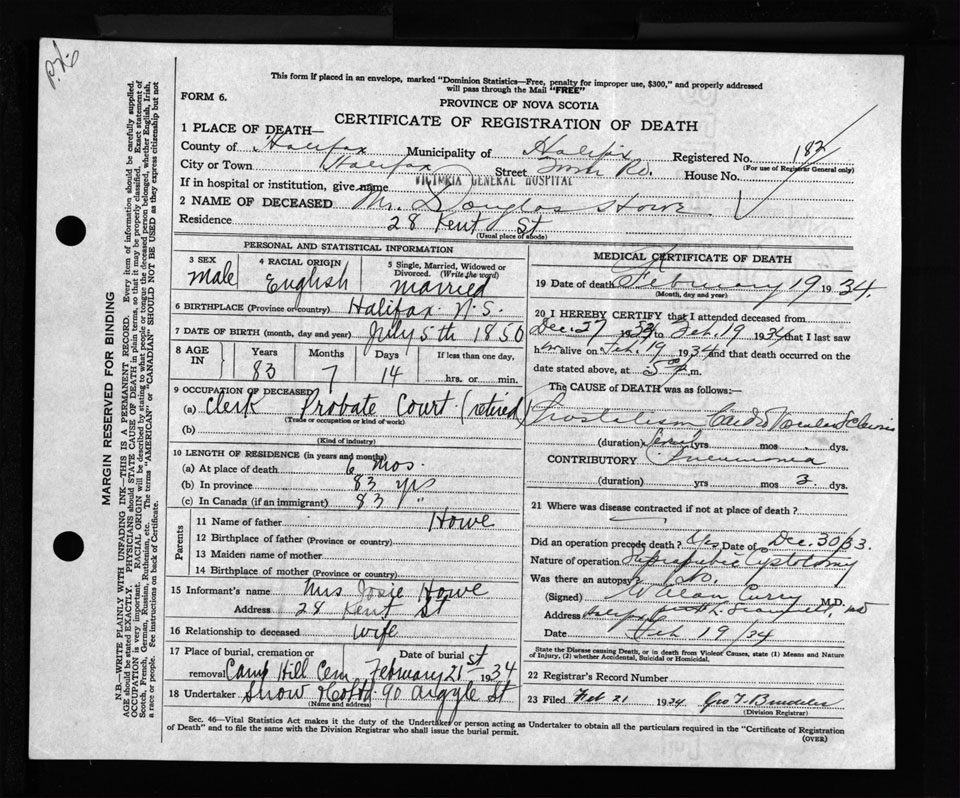 P.26
This form if placed in an envelope, marked "Dominion Statistics—Free, penalty for improper use, $300," and properly addressed
will pass through the Mail "FREE"
FORM 6.
PROVINCE OF NOVA SCOTIA
CERTIFICATE OF REGISTRATION OF DEATH
1 PLACE OF DEATH—
County of Halifax Municipality of Halifax Registered No. 182
(For use of Registrar General only)
City or Town Halifax Street Rd. House No.
If in hospital or institution, give name VICTORIA GENERAL HOSPITAL
2 NAME OF DECEASED Mr. Douglas Howe
Residence 28 Kent St
(Usual place of abode)
PERSONAL AND STATISTICAL INFORMATION
3 SEX male
4 RACIAL ORIGIN English
5 Single, Married, Widowed or
Divorced. (Write the word)
married
6 BIRTHPLACE (Province or country) Halifax N.S.
7 DATE OF BIRTH (month, day and year) July 5th 1850
8 AGE IN
Years Months Days If less than one day,
83 7 14 hrs. or min.
9 OCCUPATION OF DECEASED
(a) Clerk Probate Court (retired)
(Trade or occupation or kind of work)
(b)
(Kind of industry)
10 LENGTH OF RESIDENCE (in years and months)
(a) At place of death 6 mos.
(b) In province 83 yrs
(c) In Canada (if an immigrant) 83 "
Parents
11 Name of father Howe
12 Birthplace of father (Province or country)
13 Maiden name of mother
14 Birthplace of mother (Province or country)
15 Informant's name Mrs Josie Howe
Address 28 Kent St
16 Relationship to deceased wife
17 Place of burial, cremation or Date of burial
removal Camp Hill Cem February 21st 1934
18 Undertaker Snow & Co Ltd. 90 Argyle St
(Name and address)
MEDICAL CERTIFICATE OF DEATH
19 Date of death February 19 1934.
(Month, day and year)
20 I HEREBY CERTIFY that I attended deceased from
Dec. 27 1933 to Feb. 19 1934 that I last saw
him alive on Feb. 19 1934 and that death occurred on the
date stated above, at 5 p.m.
The CAUSE of DEATH was as follows:—
Prostatism Cardio Vascular Sclerosis
(duration) yrs mos. dys.
CONTRIBUTORY Pneumonia
(duration) yrs mos 3 dys.
21 Where was disease contracted if not at place of death?
Did an operation precede death? Yes Date of Dec. 30/33.
Nature of operation Suprapubic Cystotomy
Was there an autopsy? No.
(Signed) W. Alan Curry M.D.
Address Halifax
Date Feb 19/34
State the Disease causing Death, or in death from Violent Causes, state (1) Means and
Nature of Injury, (2) whether Accidental, Suicidal or Homicidal.
22 Registrar's Record Number
23 Filed Feb 21 1934
(Division Registrar)
Sec. 46—Vital Statistics Act makes it the duty of the Undertaker or person acting as Undertaker to obtain all the particulars required in the "Certificate of Registration
of Death" and to file the same with the Division Registrar who shall issue the burial permit.
(OVER)
MARGIN RESERVED FOR BINDING
N.B.—WRITE PLAINLY WITH UNFADING INK—THIS IS A PERMANENT RECORD. Every item of information should be carefully supplied.
AGE should be stated EXACTLY. PHYSICIANS should STATE CAUSE OF DEATH in plain terms, so that it may be properly classified. Exact statement of
OCCUPATION is very important. RACIAL ORIGIN will be described by stating to what people or tongue the deceased person belonged, whether English, Irish,
Scotch, French, German, Russian, Ruthenian, etc. The terms "AMERICAN" or "CANADIAN" SHOULD NOT BE USED as they express citizenship but not
a race or people. See instructions on back of Certificate.